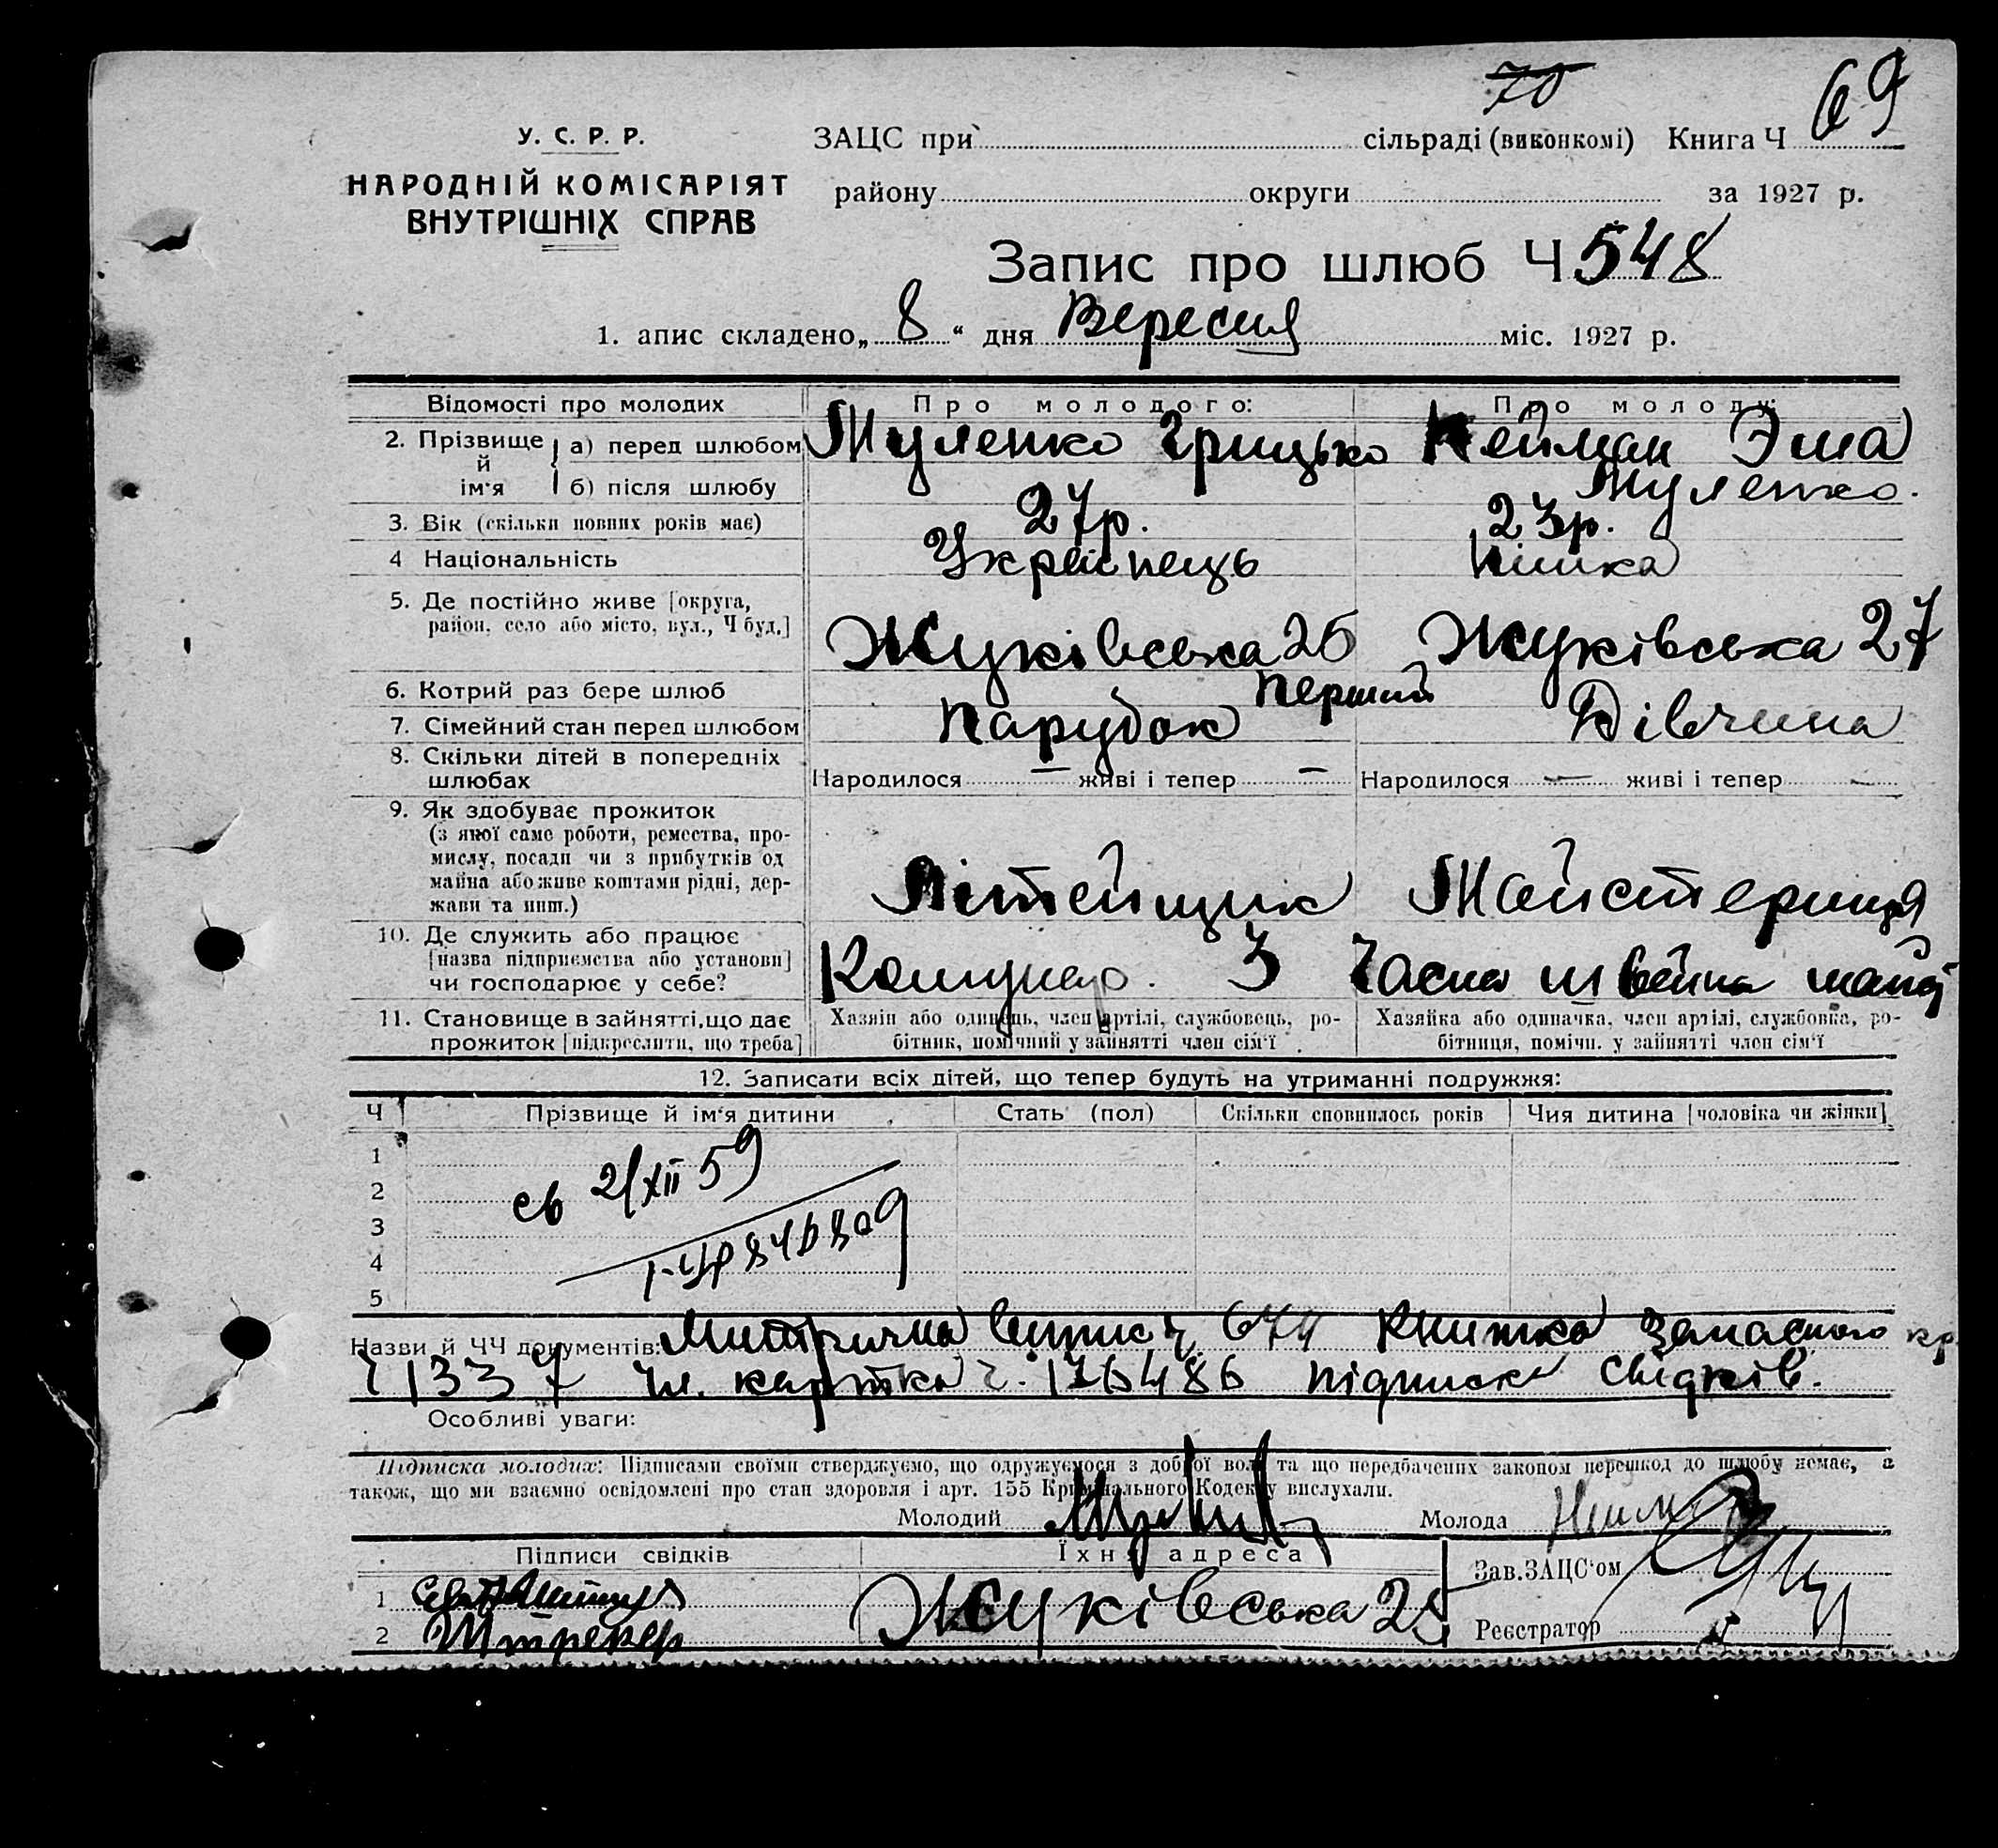 70
69
У. С. Р. Р.
НАРОДНІЙ КОМІСАРІЯТ
ВНУТРІШНІХ СПРАВ
ЗАЦС при сільраді (виконкомі) Книга Ч
району округи за 1927 р.
Запис про шлюб Ч 548
1. апис складено „ 8 “ дня Вересня міс. 1927 р.
Відомості про молодих Про молодого: Про молоду:
2. Прізвище й ім'я а) перед шлюбом Муленко Грицько Нейман Эма
б) після шлюбу Муленко.
3. Вік (скільки повних років має) 27р. 23р.
4 Національність Українець Німка
5. Де постійно живе [округа, район, село або місто, вул., Ч буд.] Жуківська 25 Жуківська 27
6. Котрий раз бере шлюб Перший
7. Сімейний стан перед шлюбом Парубок Дівчина
8. Скільки дітей в попередніх шлюбах Народилося — живі і тепер — Народилося — живі і тепер —
9. Як здобуває прожиток
(з якої саме роботи, ремества, про-
мислу, посади чи з прибутків од
майна або живе коштами рідні, дер-
жави та инш.) Літейщик Майстериця
10. Де служить або працює
[назва підприємства або установи]
чи господарює у себе? Комунар. 3 Часна швейна май
11. Становище в зайнятті, що дає
прожиток [підкреслити, що треба]
Хазяін або одинець, член артілі, службовець, ро-
бітник, помічний у зайнятті член сім'ї
Хазяйка або одиначка, член артілі, службовка, ро-
бітниця, помічн. у зайнятті член сім'ї
12. Записати всіх дітей, що тепер будуть на утриманні подружжя:
Ч Прізвище й ім'я дитини Стать (пол) Скільки сповнилось років Чия дитина [чоловіка чи жінки]
1
2
3
4
5
св 21/XII 59
Назви й ЧЧ документів: Митрична випись ч. 644 Книжка Запасного кр
ч 1337 чл. картка ч. 176486 підписка свідків.
Особливі уваги:
Підписка молодих: Підписами своїми стверджуємо, що одружуємося з доброї волі та що передбачених законом перешкод до шлюбу немає, а
також, що ми взаємно освідомлені про стан здоровля і арт. 155 Кримінального Кодексу вислухали.
Молодий Молода
Підписи свідків Їхня адреса Зав. ЗАЦС'ом
1 Жуківська 25
2 Реєстратор